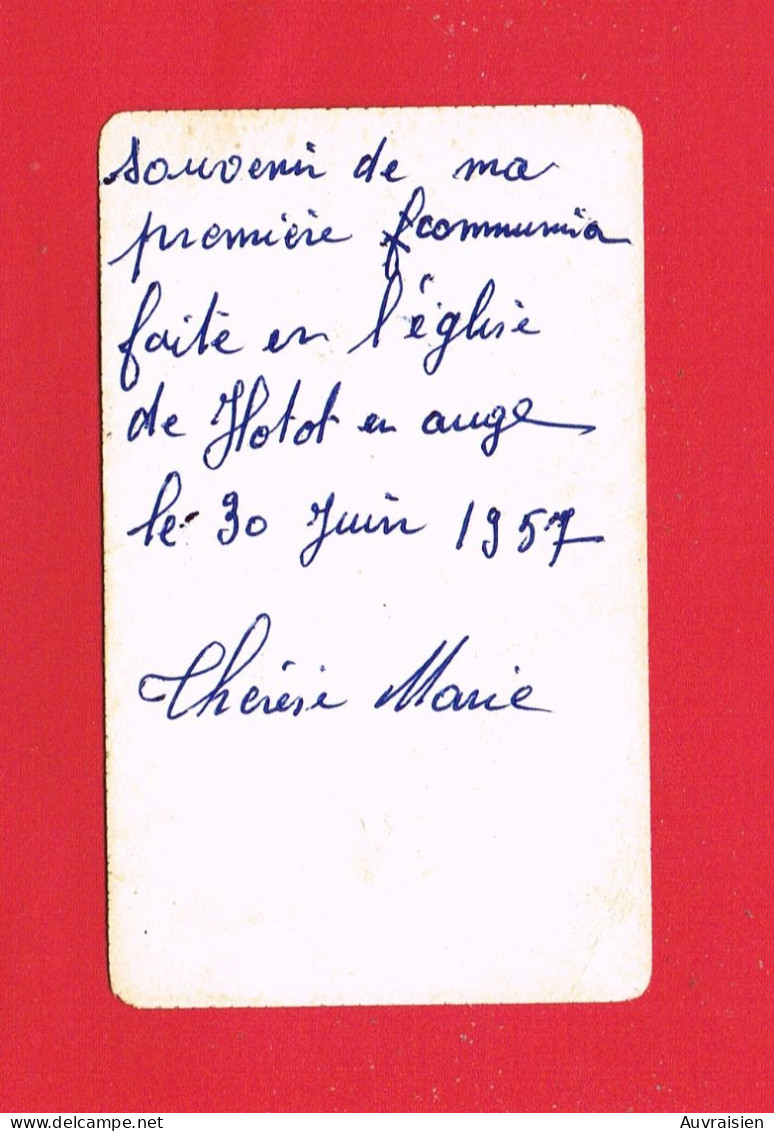 souvenir de ma
première communio
faite en l'église
de Hotot en auge
le 30 Juin 1957
Thérèse Marie
Auvraisien